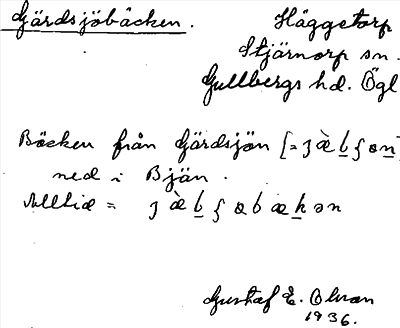 Gärdsjöbäcken.
Häggetorp
Stjärnorp sn.
Gullbergs hd. Ögl
Bäcken från Gärdsjön [= ʒ à̈ b ʃ ɵ n]
ned i Bjän.
Alltid = ʒ à̈ b ʃ ɵ b æ k ə n
Gustaf E. Olson
1936.